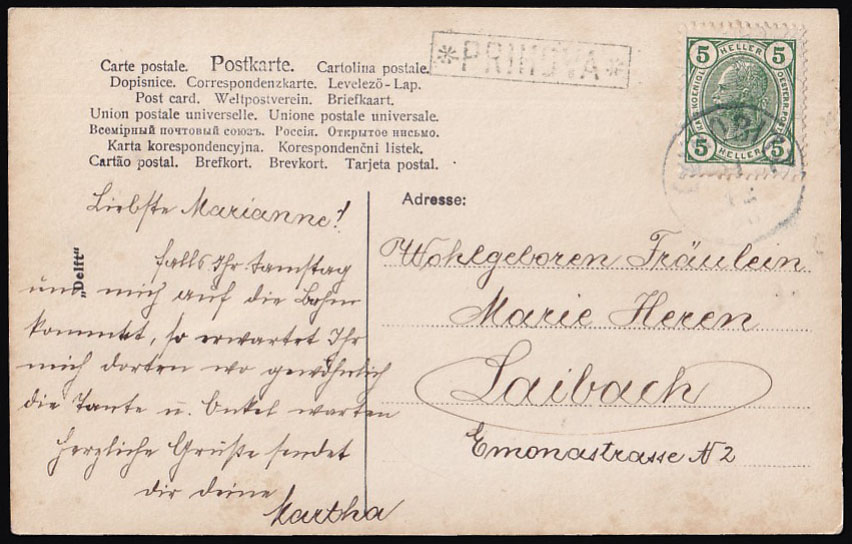 Carte postale. Postkarte. Cartolina postale.
Dopisnice. Correspondenzkarte. Levelező-Lap.
Post card. Weltpostverein. Briefkaart.
Union postale universelle. Unione postale universale.
Всемірный почтовый союзъ. Россія. Открытое письмо.
Karta korespondencyjna. Korespondenční listek.
Cartão postal. Brefkort. Brevkort. Tarjeta postal.
*PRIHOVA*
5 HELLER 5
KAIS.KOENIGL. OESTERR.POST
5 HELLER 5
Liebste Marianne!
falls Ihr Samstag
um mich auf die Bahn
kommtet, so erwartet Ihr
mich dorten wo gewöhnlich
die Tante u. Onkel warten
Herzliche Grüße sendet
dir deine
Martha
„Delft“
Adresse:
Wohlgeboren Fräulein
Marie Heren
Laibach
Emonastrasse N 2